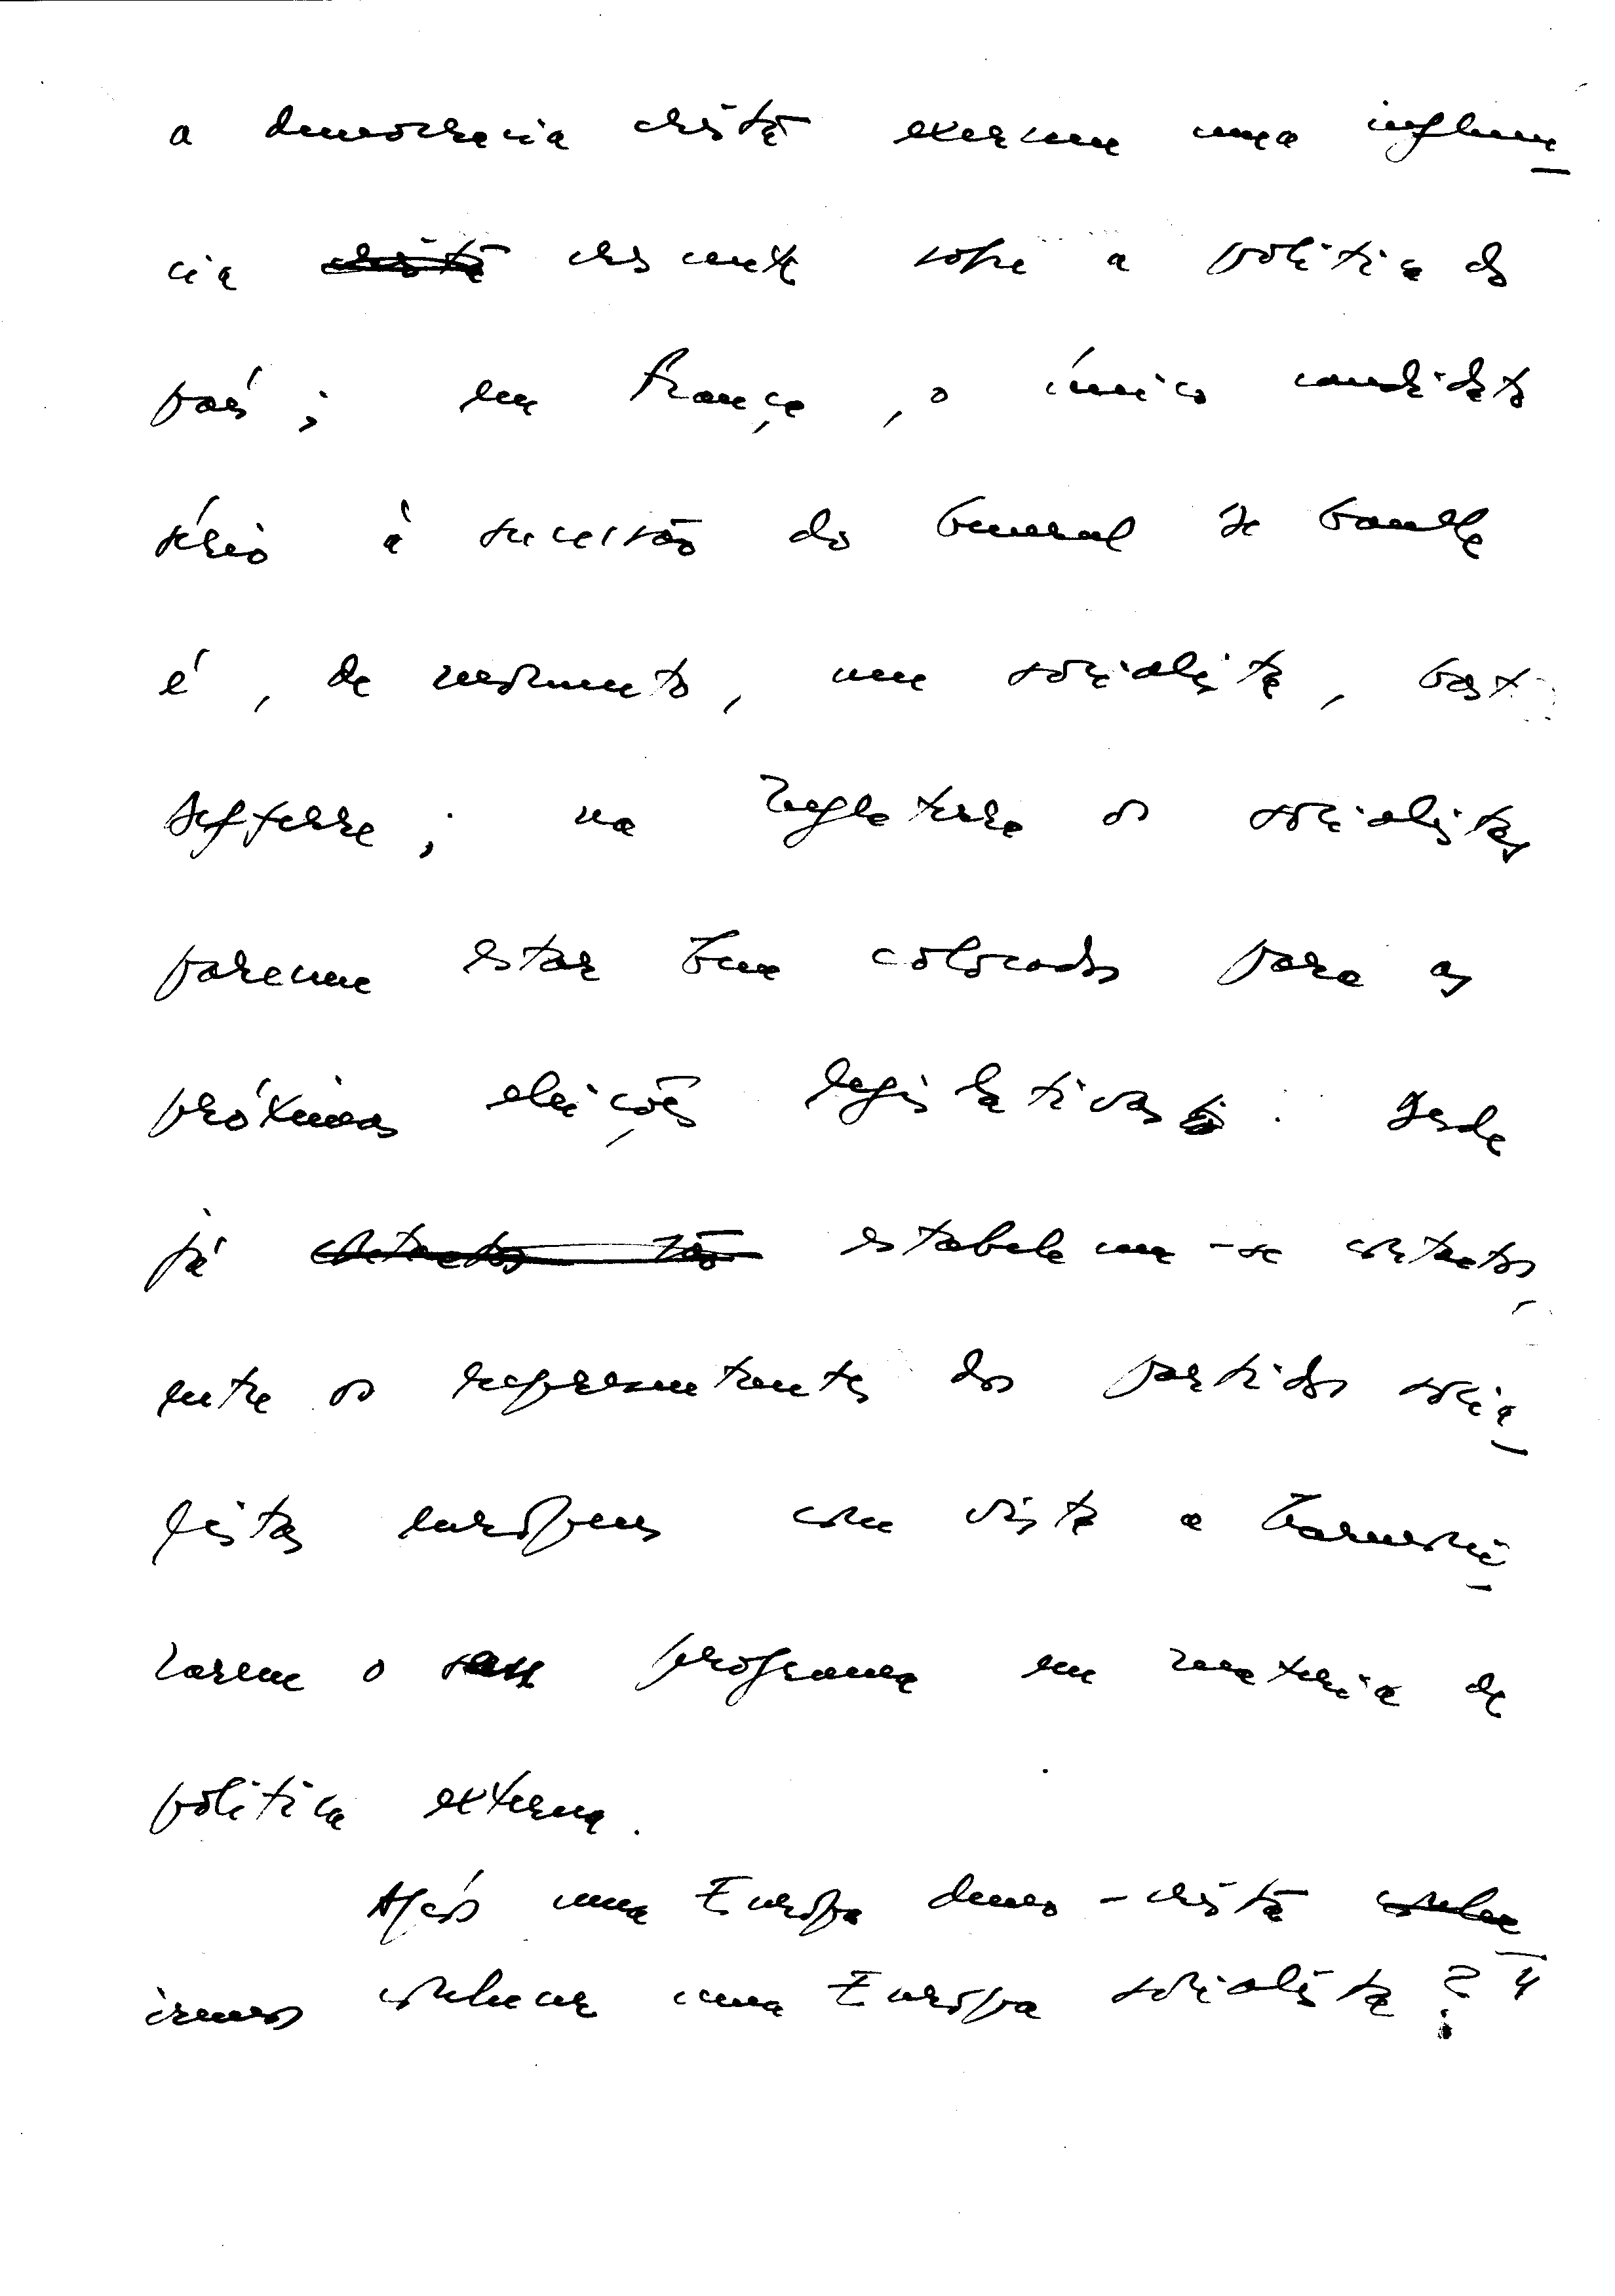 a democracia cristã exercem uma influên-
cia ~~cristã~~ crescente sobre a política do
país; em França, o único candidato
sério à sucessão do General de Gaulle
é, de momento, um socialista, Gast
Defferre; na Inglaterra os socialistas
parecem estar bem colocados para as
próximas eleições legislativas. Desde
já ~~contactos são~~ estabelecem-se contactos,
entre os representantes dos partidos socia-
listas europeus com vista a harmoni-
zarem o seu programa em matéria de
política externa.
Após uma Europa democ-cristã ~~conhe~~
iremos conhecer uma Europa socialista? "